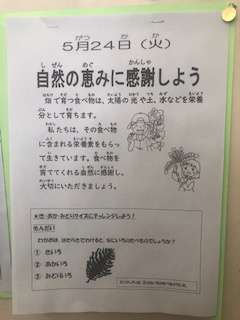 5月24日（火）
自然の恵みに感謝しよう
畑で育つ食べ物は、太陽の光や土、水などを栄養
分として育ちます。
私たちは、その食べ物
に含まれる栄養素をもらっ
て生きています。食べ物を
育ててくれる自然に感謝し、
大切にいただきましょう。
★き・あか・みどりクイズにチャレンジしよう！
もんだい
わかめは、はたらきでわけると、なにいろのたべものでしょうか？
① きいろ
② あかいろ
③ みどりいろ